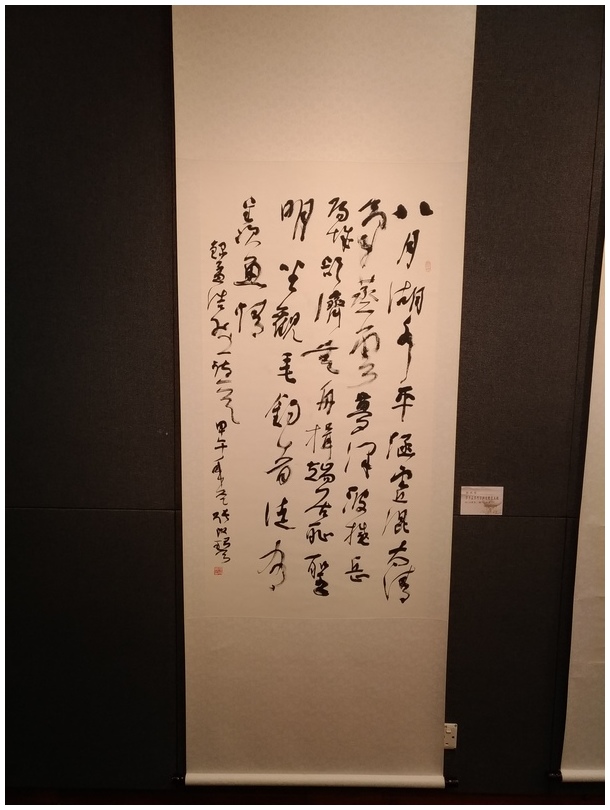 八月湖水平涵虛混太清
氣蒸雲夢澤波撼岳
陽城欲濟無舟楫端居恥聖
明坐觀垂釣者徒有
羨魚情
錄孟浩然詩一首 甲午年